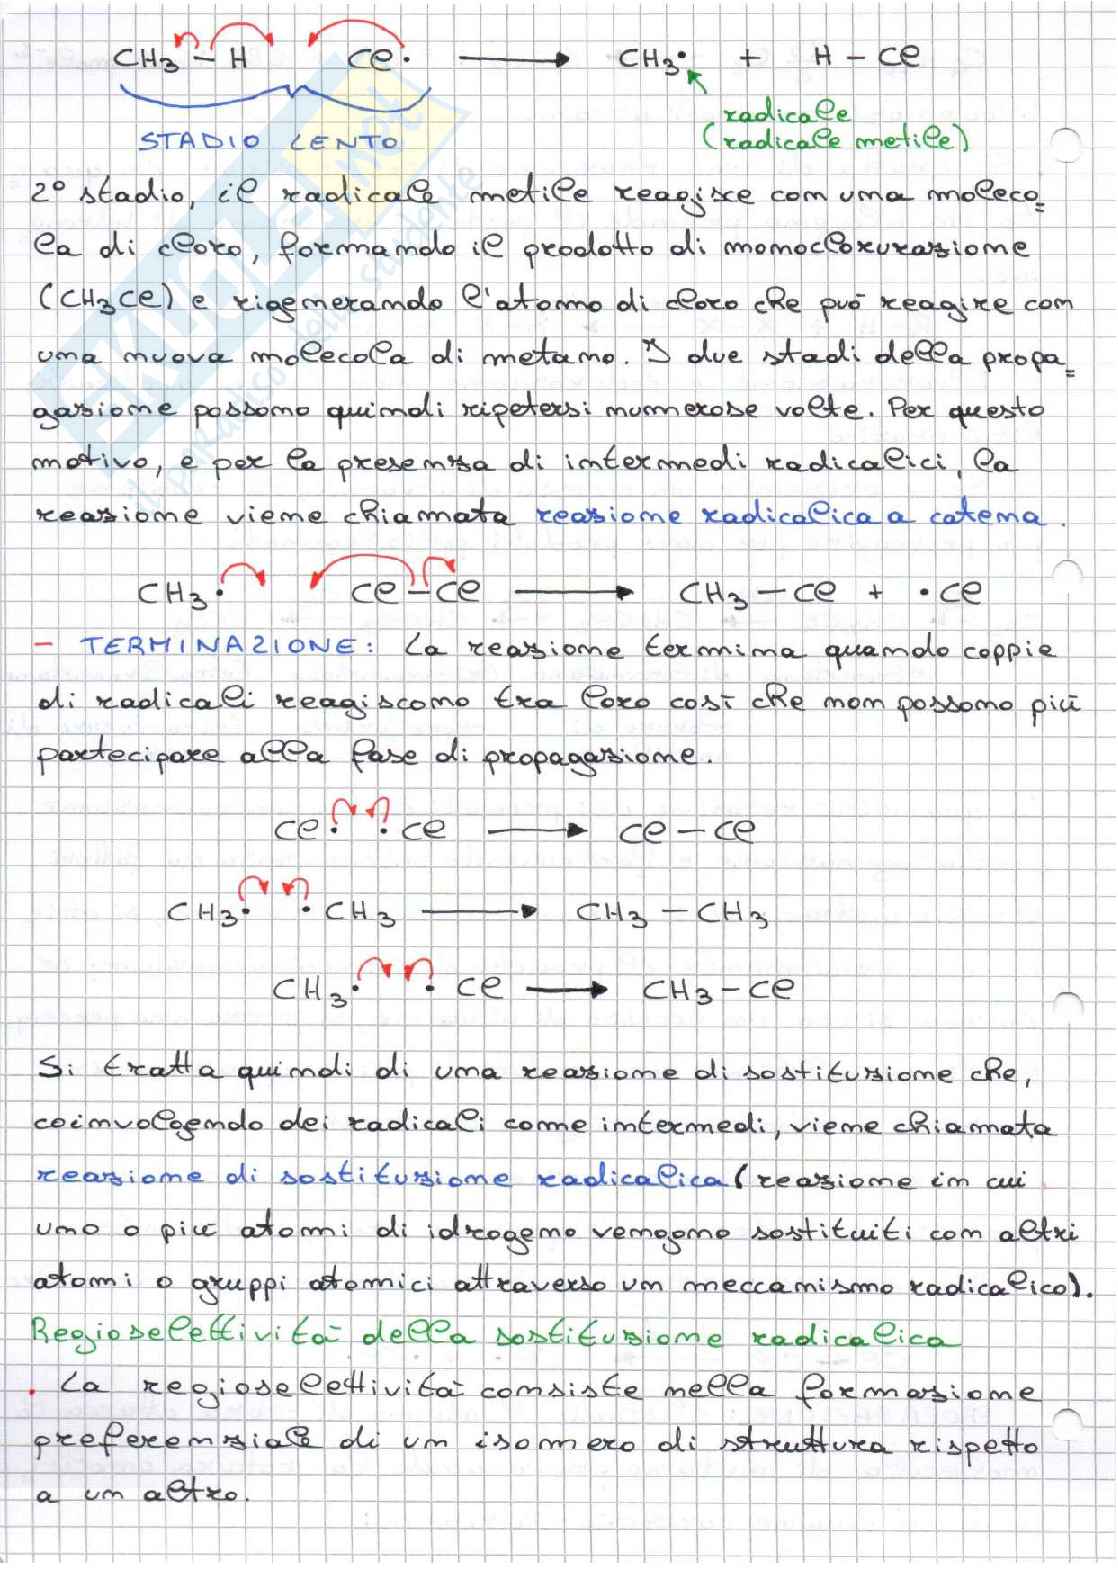 CH₃ – H   Cl•  →  CH₃•  +  H – Cl
radicale
STADIO LENTO   (radicale metile)
2° stadio, il radicale metile reagisce con una moleco=
la di cloro, formando il prodotto di monoclorurazione
(CH₃Cl) e rigenerando l'atomo di cloro che può reagire con
una nuova molecola di metano. I due stadi della propa=
gazione possono quindi ripetersi numerose volte. Per questo
motivo, e per la presenza di intermedi radicalici, la
reazione viene chiamata reazione radicalica a catena.
CH₃•   Cl–Cl  →  CH₃–Cl + •Cl
– TERMINAZIONE: La reazione termina quando coppie
di radicali reagiscono tra loro così che non possono più
partecipare alla fase di propagazione.
Cl•  •Cl  →  Cl–Cl
CH₃•  •CH₃  →  CH₃–CH₃
CH₃•  •Cl  →  CH₃–Cl
Si tratta quindi di una reazione di sostituzione che,
coinvolgendo dei radicali come intermedi, viene chiamata
reazione di sostituzione radicalica (reazione in cui
uno o più atomi di idrogeno vengono sostituiti con altri
atomi o gruppi atomici attraverso un meccanismo radicalico).
Regioselettività della sostituzione radicalica
. La regioselettività consiste nella formazione
preferenziale di un isomero di struttura rispetto
a un altro.